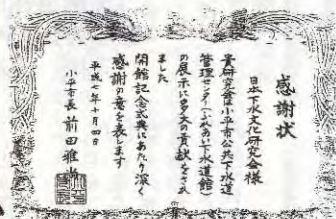 感謝状
日本下水文化研究会様
貴研究会は小平市公共下水道
管理センター(ふれあい下水道館)
の展示に多大の貢献をされ
ました
開館記念式典にあたり深く
感謝の意を表します
平成七年十月四日
小平市長 前田雅尚